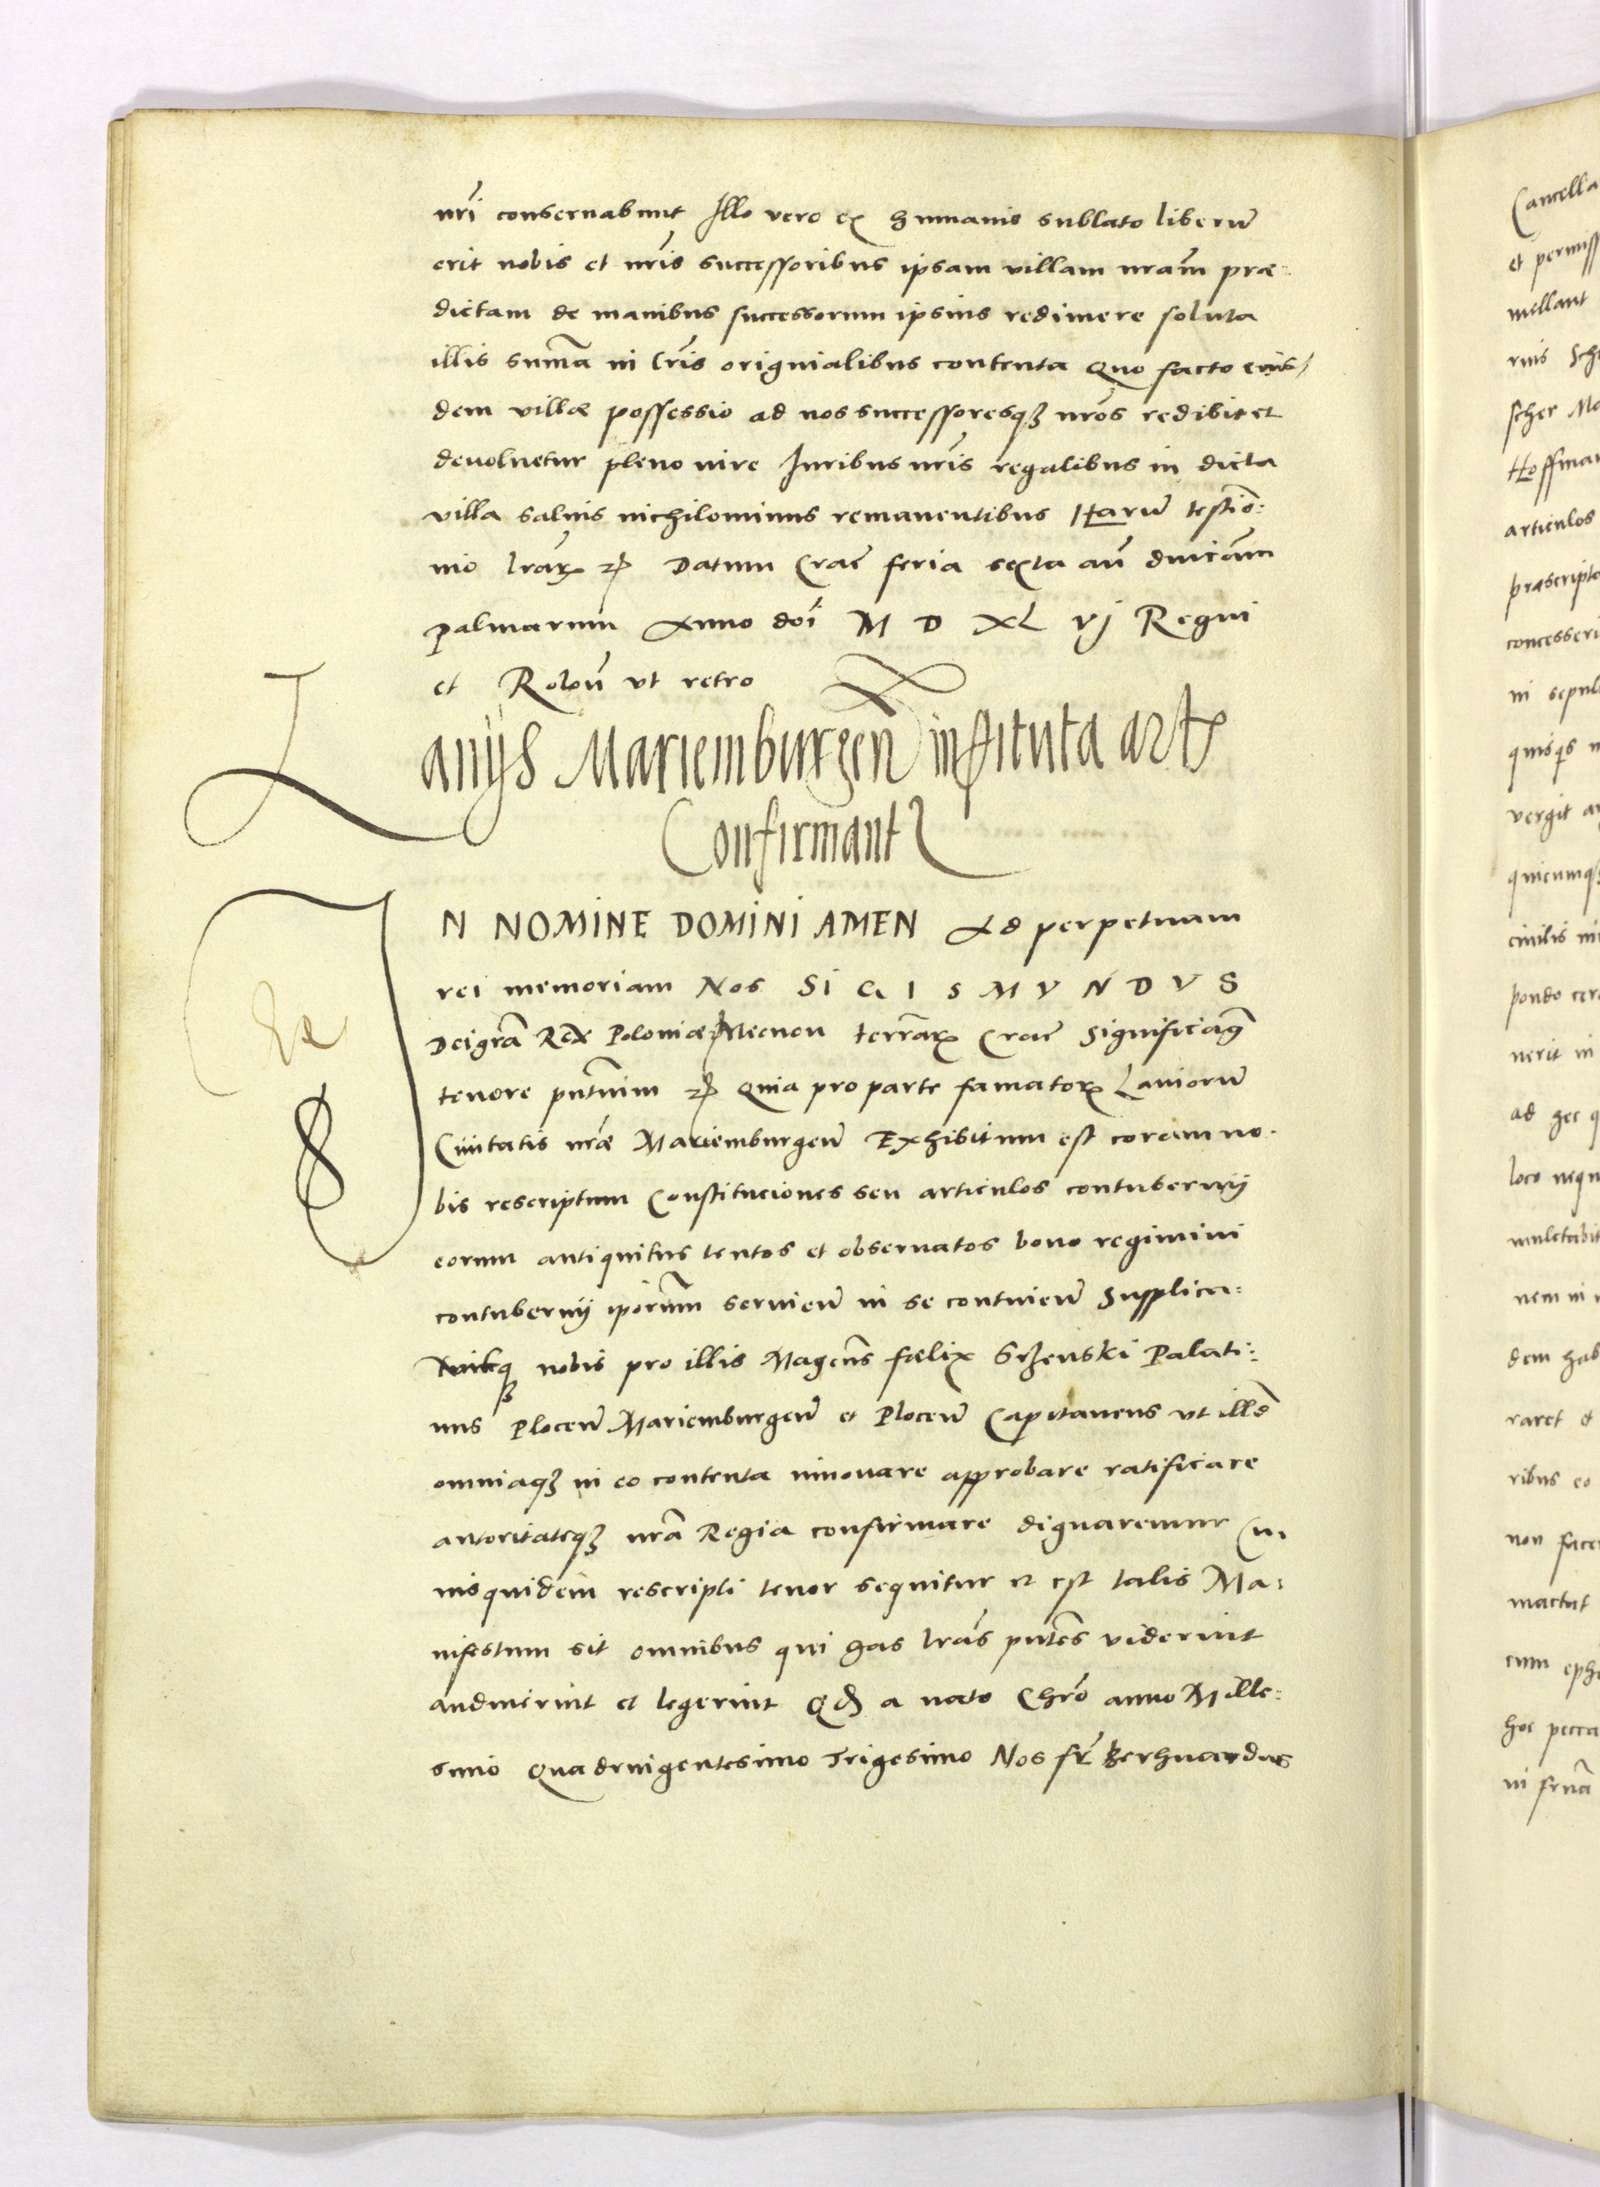 nr̃i conservabunt Illo vero ex humanis sublato liberũ
erit nobis et nr̃is successoribus ipsam villam nram̃ præ-
dictam de manibus successorum ipsius redimere soluta
illis sum̃a in lr̃is originalibus contenta Quo facto eius/
dem villæ possessio ad nos successoresqꝫ nr̃os redibit et
devolvetur pleno iure Iuribus nr̃is regalibus in dicta
villa salvis nichilominus remanentibus Harũ testĩo:
nio lrãrꝫ Datum Crac̃ feria sexta añ dnicãm
palmarum Anno dõi M D XL vj Regni
et Roloñ ut retro
Lanijs Mariemburgeñ instituta art
Confirmant
IN NOMINE DOMINI AMEN Ad perpetuam
rei memoriam Nos SIGISMVNDVS
Dei grã Rex Poloniæ Necnon terrarꝫ̃ Crac̃ Significãꝫ
tenore pñtium Quia pro parte famatorꝫ Laniorũ
Civitatis nrǣ Mariemburgeñ Exhibitum est coram no-
bis rescriptum Constituciones seu articulos contubernij
eorum antiquitus tentos et observatos bono regimini
contubernij ipor̃um servieñ in se contineñ Supplica:
nobis pro illis Magcñs fælix Srzenski Palati:
nus Ploceñ Mariemburgeñ et Ploceñ Capitaneus ut illd̃
omniaqꝫ in eo contenta innovare approbare ratificare
autoritateqꝫ nrã Regia confirmare dignaremur Cu
iusquidem rescripti tenor sequitur et est talis Ma:
nifestum sit omnibus qui has lrãs pñtes viderint
audiverint et legerint Qđ a nato Chrõ anno Mille:
simo Quadringentesimo Trigesimo Nos fr̃ Berhnardus
Cancella
et permiss
nullant
scher
Hoffman
articulos
præscripto
concesseri
in sepul
vergit
civilis
pondo
nerit in
loco
nem in
dem hab
raret et
ribus eo
non
mactat
cum
hoc pecca